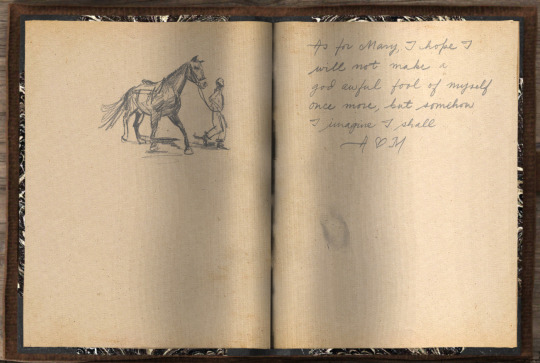 As for Mary, I hope I
will not make a
god awful fool of myself
once more, but somehow
I imagine I shall
A ♡ M